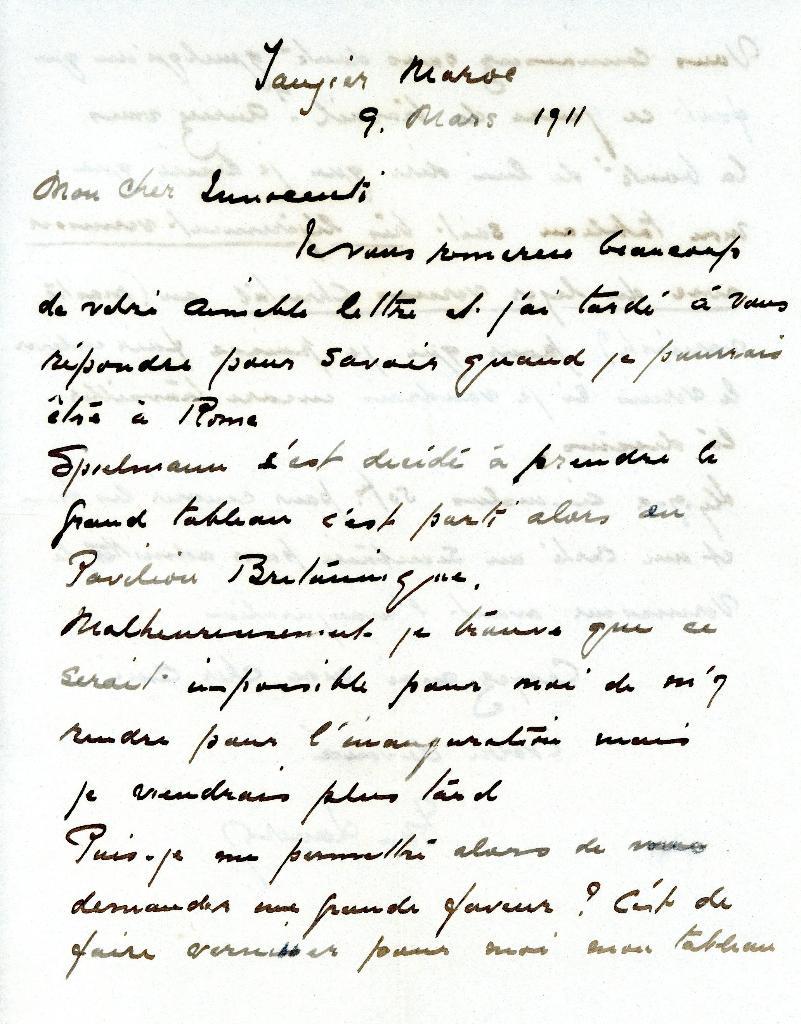 Tangier Maroc
9. Mars 1911
Mon cher Innocenti
Je vous remercie beaucoup
de votre aimable lettre et j'ai tardé à vous
répondre pour savoir quand je pourrais
être à Rome
Spielmann s'est decidé à prendre le
grand tableau c'est parti alors au
Pavilion Britannique.
Malheureusement je trouve que ce
serait impossible pour moi de m'y
rendre pour l'inauguration mais
je viendrais plus tard
Puis-je me permettre alors de vous
demander une grande faveur? C'est de
faire vernisser pour moi mon tableau